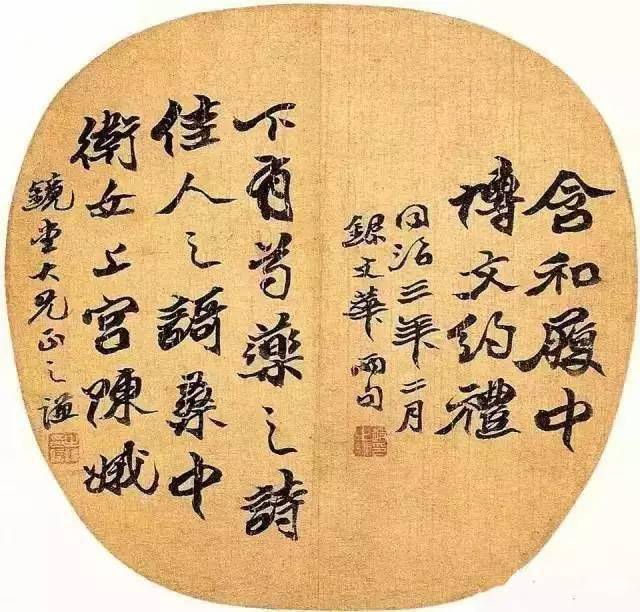 含和履中
博文約禮
同治三年二月
錄文華兩句
下有芍藥之詩
佳人之謌桒中
衛女上宮陳娥
鏡堂大兄正之謙